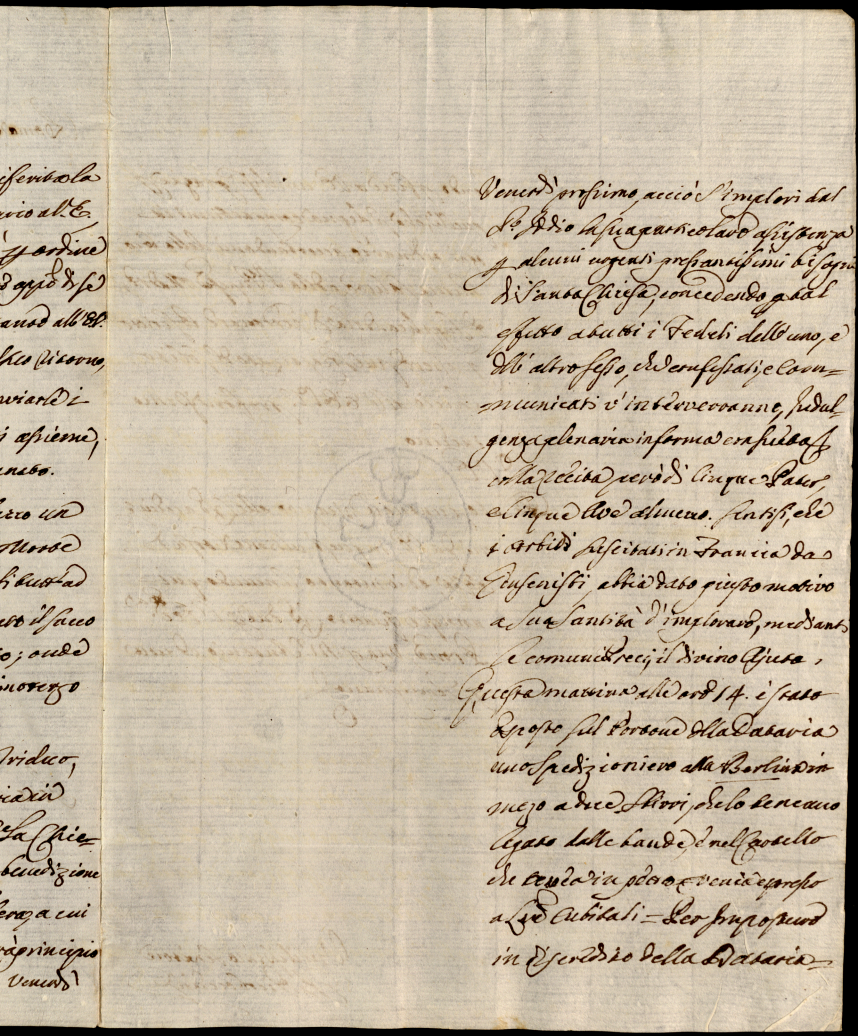 iferita la
ario al E.
ordine
di se
tanto all'
Ritorno,
nviarle i
i assieme,
unato.
un
Morte
il sacco
o; onde
Triduo,
ria in
La Chie=
benedizione
a cui
rà principio
Venerdì
Venerdì prossimo, acciò s'implori dal
Sig.r Iddio la sua particolare assistenza
p alcuni urgenti pressantissimi bisogni
di Santa Chiesa, concedendo p tal
effetto a tutti i Fedeli dell'uno, e
dell'altro sesso, che confessati, e Com=
municati v'interverranno, Indul=
genza plenaria in forma consueta
colla recita però di Cinque Pater,
e Cinque Ave almeno. Sentesi, che
i torbidi suscitati in Francia da
Giansenisti, abbia dato giusto motivo
a Sua Santità d'implorare, mediante
le comuni preci, il divino Ajuto.
Questa mattina alle ore 14. è stato
Esposto sul Portone della Dataria
uno Spedizioniero alla Berlina in
mezo a due Sbirri, che lo teneano
legato dalle bande, e nel Cartello
che teneva in petto veniva espresso
a Lre Cubitali = Per Impostore
in discredito della Dataria =